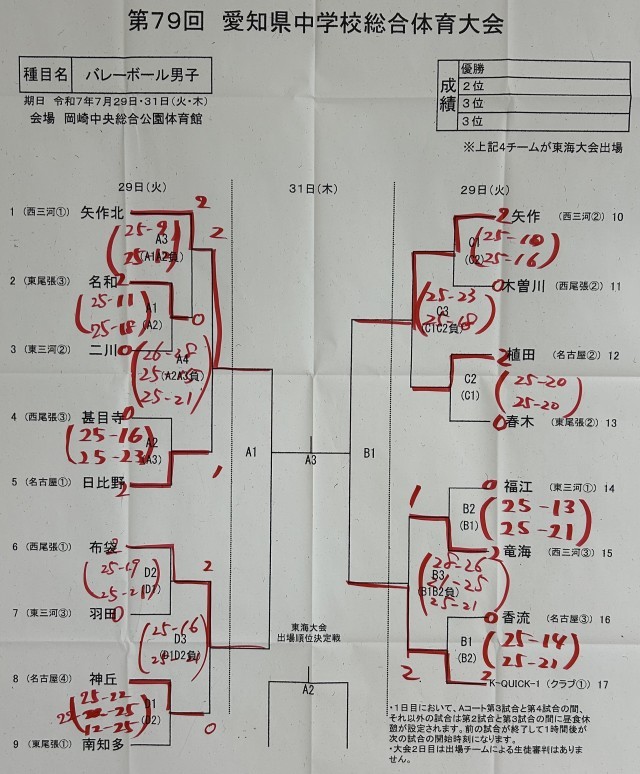 第79回 愛知県中学校総合体育大会
種目名 バレーボール男子
期日 令和7年7月29日・31日(火・木)
会場 岡崎中央総合公園体育館
成績
優勝
2位
3位
3位
※上記4チームが東海大会出場
29日(火) 31日(木) 29日(火)
1 (西三河①) 矢作北 2
25-9
A3
(A1A2負)
2
2 (東尾張③) 名和 2
25-11
A1
25-18
(A2)
0
3 (東三河②) 二川 0
26-28
A4
(A2A3負)
25-21
4 (西尾張③) 甚目寺 0
25-16
A2
25-23
(A3)
5 (名古屋①) 日比野 2
1
6 (西尾張①) 布袋 2
25-19
D2
25-21
(D1)
2
7 (東三河③) 羽田 0
25-16
D3
8 (名古屋④) 神丘
25-22
D1
(D2)
12-25
0
9 (東尾張①) 南知多
A1
A3
B1
東海大会
出場順位決定戦
A2
2 矢作 (西三河②) 10
C1
25-10
(C2)
25-16
0 木曽川 (西尾張②) 11
25-23
C3
25-18
(C1C2負)
2 植田 (名古屋②) 12
C2
25-20
(C1)
25-20
0 春木 (東尾張②) 13
0 福江 (東三河①) 14
1
B2
25-13
(B1)
25-21
2 竜海 (西三河③) 15
28-26
B3
(B1B2負)
25-21
0 香流 (名古屋③) 16
B1
25-14
(B2)
25-21
2
2
K-QUICK-1 (クラブ①) 17
・1日目において、Aコート第3試合と第4試合の間、
それ以外の試合は第2試合と第3試合の間に昼食休
憩が設定されます。前の試合が終了して1時間後が
次の試合の開始時刻になります。
・大会2日目は出場チームによる生徒審判はありま
せん。